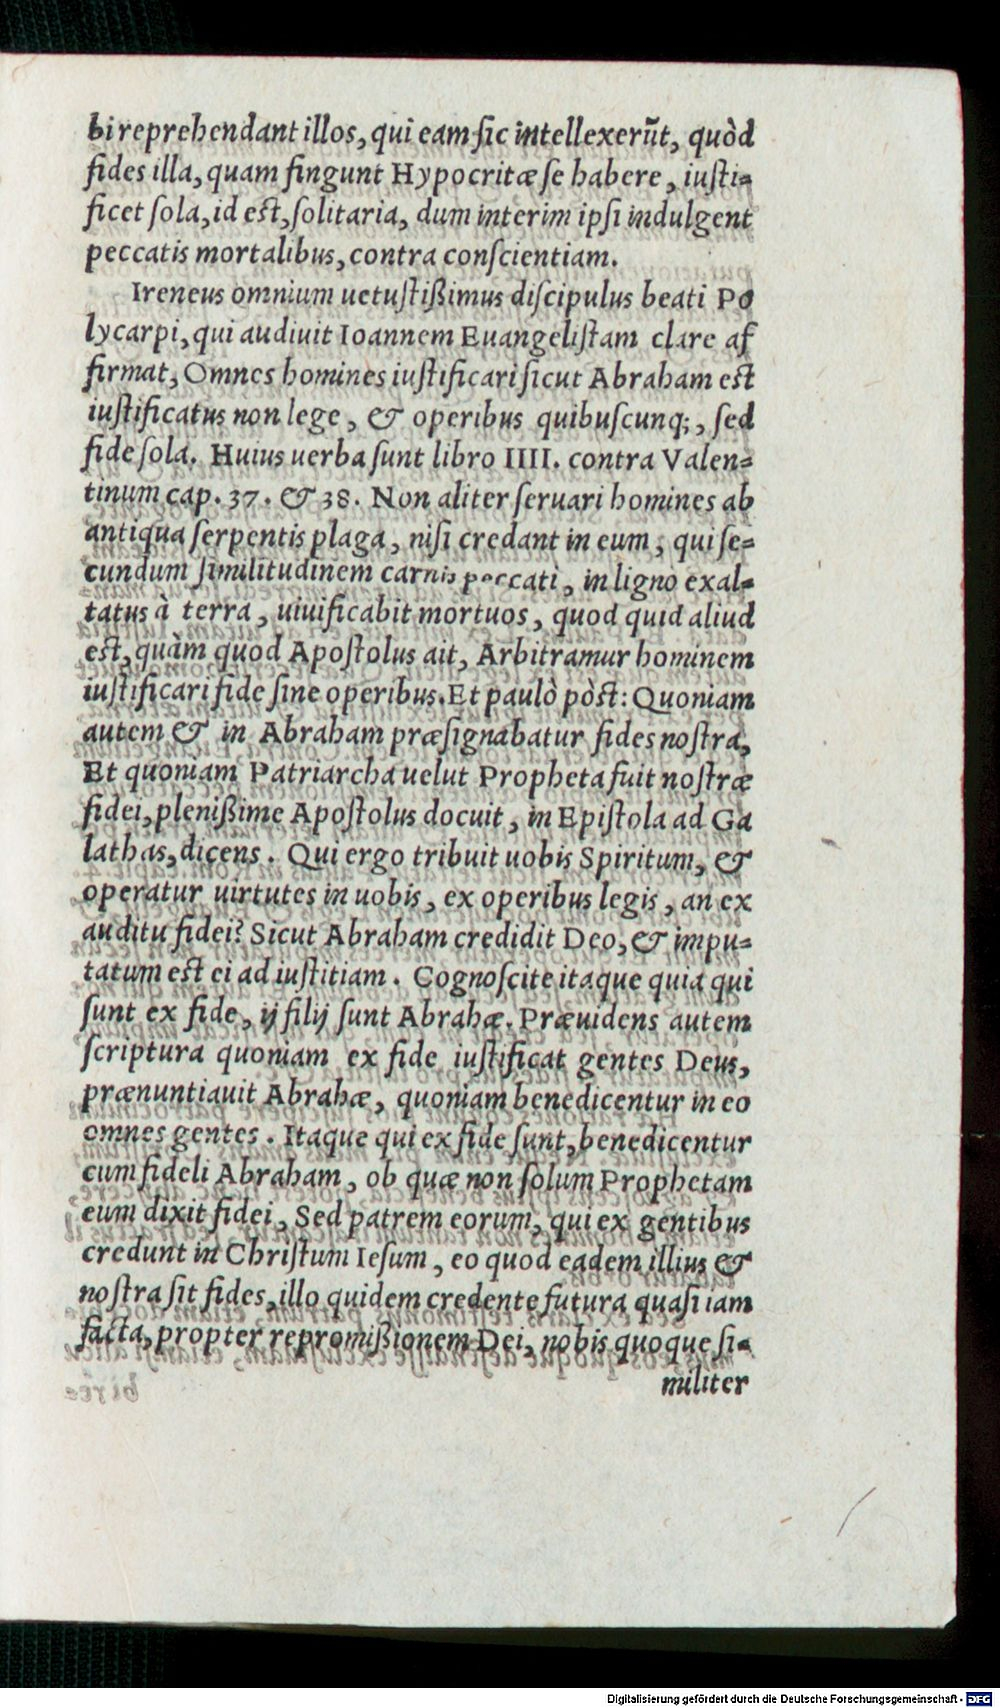 bi reprehendant illos, qui eam sic intellexerũt, quòd
fides illa, quam fingunt Hypocritæ se habere, iusti-
ficet sola, id est, solitaria, dum interim ipsi indulgent
peccatis mortalibus, contra conscientiam.
Ireneus omnium uetustißimus discipulus beati Po
lycarpi, qui audiuit Ioannem Euangelistam clare af
firmat, Omnes homines iustificari sicut Abraham est
iustificatus non lege, & operibus quibuscunq;, sed
fide sola. Huius uerba sunt libro IIII. contra Valen-
tinum cap. 37. & 38. Non aliter seruari homines ab
antiqua serpentis plaga, nisi credant in eum, qui se-
cundum similitudinem carnis peccati, in ligno exal-
tatus à terra, uiuificabit mortuos, quod quid aliud
est, quàm quod Apostolus ait, Arbitramur hominem
iustificari fide sine operibus. Et paulò pòst: Quoniam
autem & in Abraham præsignabatur fides nostra,
Et quoniam Patriarcha uelut Propheta fuit nostræ
fidei, plenißime Apostolus docuit, in Epistola ad Ga
lathas, dicens. Qui ergo tribuit uobis Spiritum, &
operatur uirtutes in uobis, ex operibus legis, an ex
auditu fidei? Sicut Abraham credidit Deo, & impu-
tatum est ei ad iustitiam. Cognoscite itaque quia qui
sunt ex fide, ij filij sunt Abrahæ. Præuidens autem
scriptura quoniam ex fide iustificat gentes Deus,
prænuntiauit Abrahæ, quoniam benedicentur in eo
omnes gentes. Itaque qui ex fide sunt, benedicentur
cum fideli Abraham, ob quæ non solum Prophetam
eum dixit fidei, Sed patrem eorum, qui ex gentibus
credunt in Christum Iesum, eo quod eadem illius &
nostra sit fides, illo quidem credente futura quasi iam
facta, propter repromißionem Dei, nobis quoque si-
militer
Digitalisierung gefördert durch die Deutsche Forschungsgemeinschaft - DFG